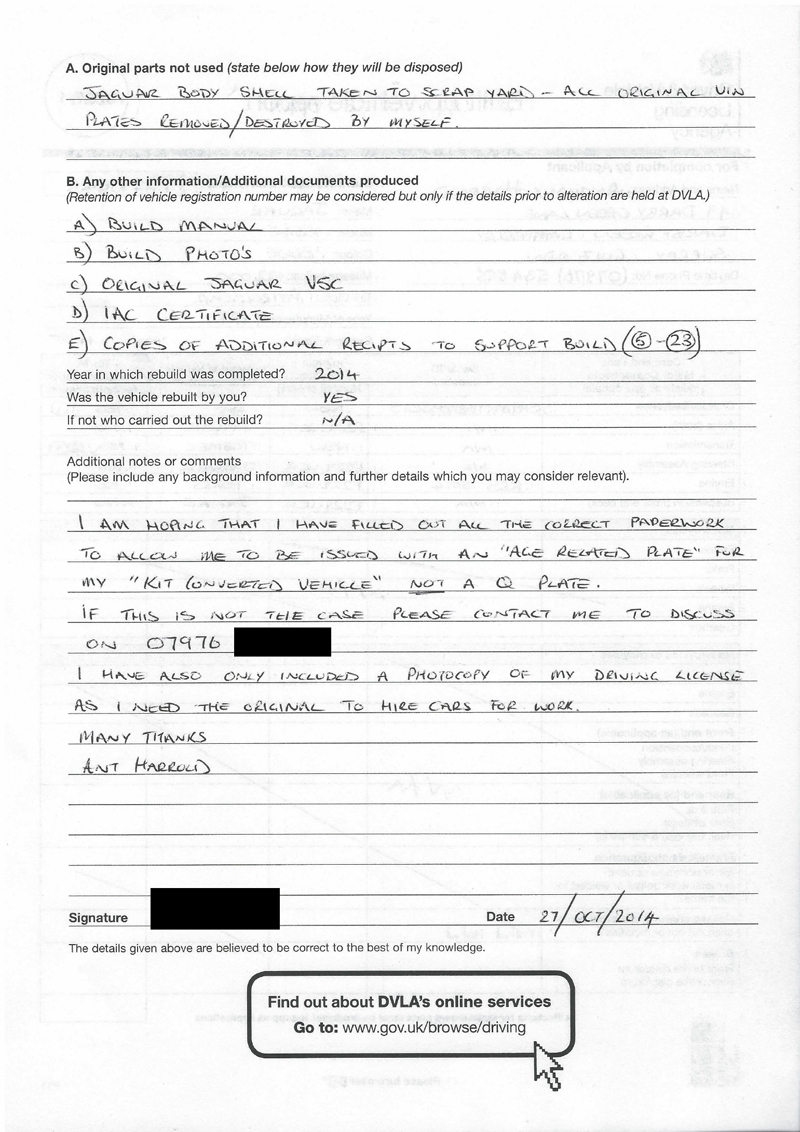 A. Original parts not used (state below how they will be disposed)
JAGUAR BODY SHELL TAKEN TO SCRAP YARD - ALL ORIGINAL VIN
PLATES REMOVED/DESTROYED BY MYSELF.
B. Any other information/Additional documents produced
(Retention of vehicle registration number may be considered but only if the details prior to alteration are held at DVLA.)
A) BUILD MANUAL
B) BUILD PHOTO'S
C) ORIGINAL JAGUAR V5C
D) IAC CERTIFICATE
E) COPIES OF ADDITIONAL RECIPTS TO SUPPORT BUILD (5 - 23)
Year in which rebuild was completed? 2014
Was the vehicle rebuilt by you? YES
If not who carried out the rebuild? N/A
Additional notes or comments
(Please include any background information and further details which you may consider relevant).
I AM HOPING THAT I HAVE FILLED OUT ALL THE CORRECT PAPERWORK
TO ALLOW ME TO BE ISSUED WITH AN "AGE RELATED PLATE" FOR
MY "KIT CONVERTED VEHICLE" NOT A Q PLATE.
IF THIS IS NOT THE CASE PLEASE CONTACT ME TO DISCUSS
ON 07976
I HAVE ALSO ONLY INCLUDED A PHOTOCOPY OF MY DRIVING LICENSE
AS I NEED THE ORIGINAL TO HIRE CARS FOR WORK.
MANY THANKS
ANT HARROLD
Signature Date 27/OCT/2014
The details given above are believed to be correct to the best of my knowledge.
Find out about DVLA's online services
Go to: www.gov.uk/browse/driving